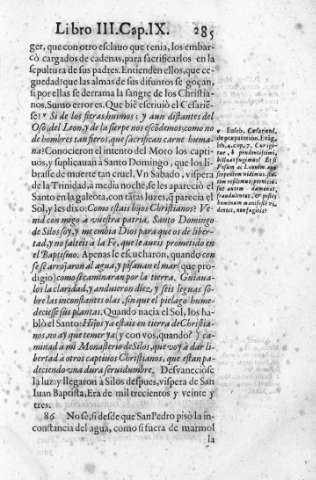 Libro III. Cap. IX. 285
ger, que con otro esclauo que tenia, los embar-
cò cargados de cadenas, para sacrificarlos en la
sepultura de sus padres. Entienden ellos, que ce-
guedad! que las almas de sus difuntos se goçan,
si por ellas se derrama la sangre de los Christia-
nos. Sumo error es. Que biē escriuiò el Cesariē-
se: Si de los fieras huimos; y aun distantes del
Oso, del Leon, y de la sierpe nos escōdemos; como no
de hombres tan fieros, que sacrifican carne huma-
na? Conocieron el intento del Moro los capti-
uos, y suplicauan a Santo Domingo, que los li-
brasse de muerte tan cruel. Vn Sabado, vispera
de la Trinidad, a media noche, se les apareciò el
Santo en la galeota, con tātas luzes, q̄ parecia el
Sol, y les dixo: Como estais hijos Christianos? Ve-
nid con migo à vuestra patria. Santo Domingo
de Silos soy, y me embia Dios para que os de liber-
tad, y no falteis à la Fe, que le aueis prometido en
el Baptismo. Apenas le escucharon, quando con
se arrojaron al agua, y pisauan el mar (que pro-
digio) como si caminaran por la tierra. Guiaua-
los la claridad, y anduuieron diez, y seis leguas so-
bre las inconstantes olas, sin que el pielago hume-
deciesse sus plantas. Quando nacia el Sol, los ha-
blò el Santo: Hijos ya estais en tierra de Christia-
nos, no ay que temer ya; y con vos, quando? y ca-
minad a mi Monasterio de Silos, que voy a dar li-
bertad à otros captiuos Christianos, que estan pa-
deciendo vna dura seruidumbre. Desvaneciòse
la luz y llegaron à Silos despues, vispera de San
Iuan Baptista, Era de mil trecientos y veinte y
tres.
86 No sè, si desde que San Pedro pisò la in-
constancia del agua, como si fuera de marmol
la
Euseb. Cæsariens.
de præparation. Euāg.
lib. 4. cap. 7.